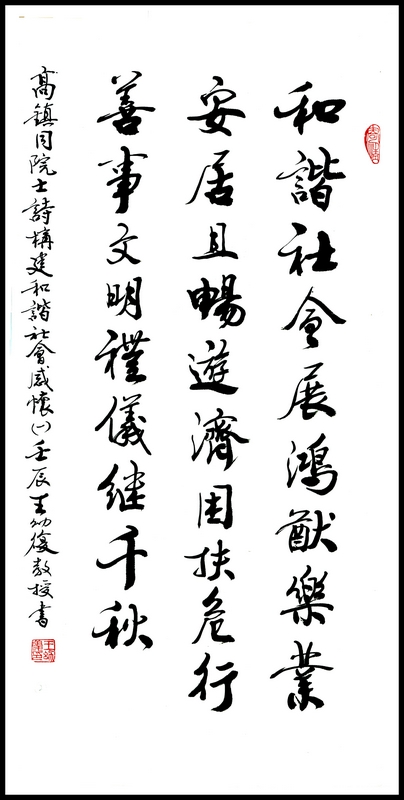 和諧社會展鴻猷樂業
安居且暢遊濟困扶危行
善事文明禮儀继千秋
高鎮同院士詩構建和諧社會感懷(一)壬辰王幼復敎授書